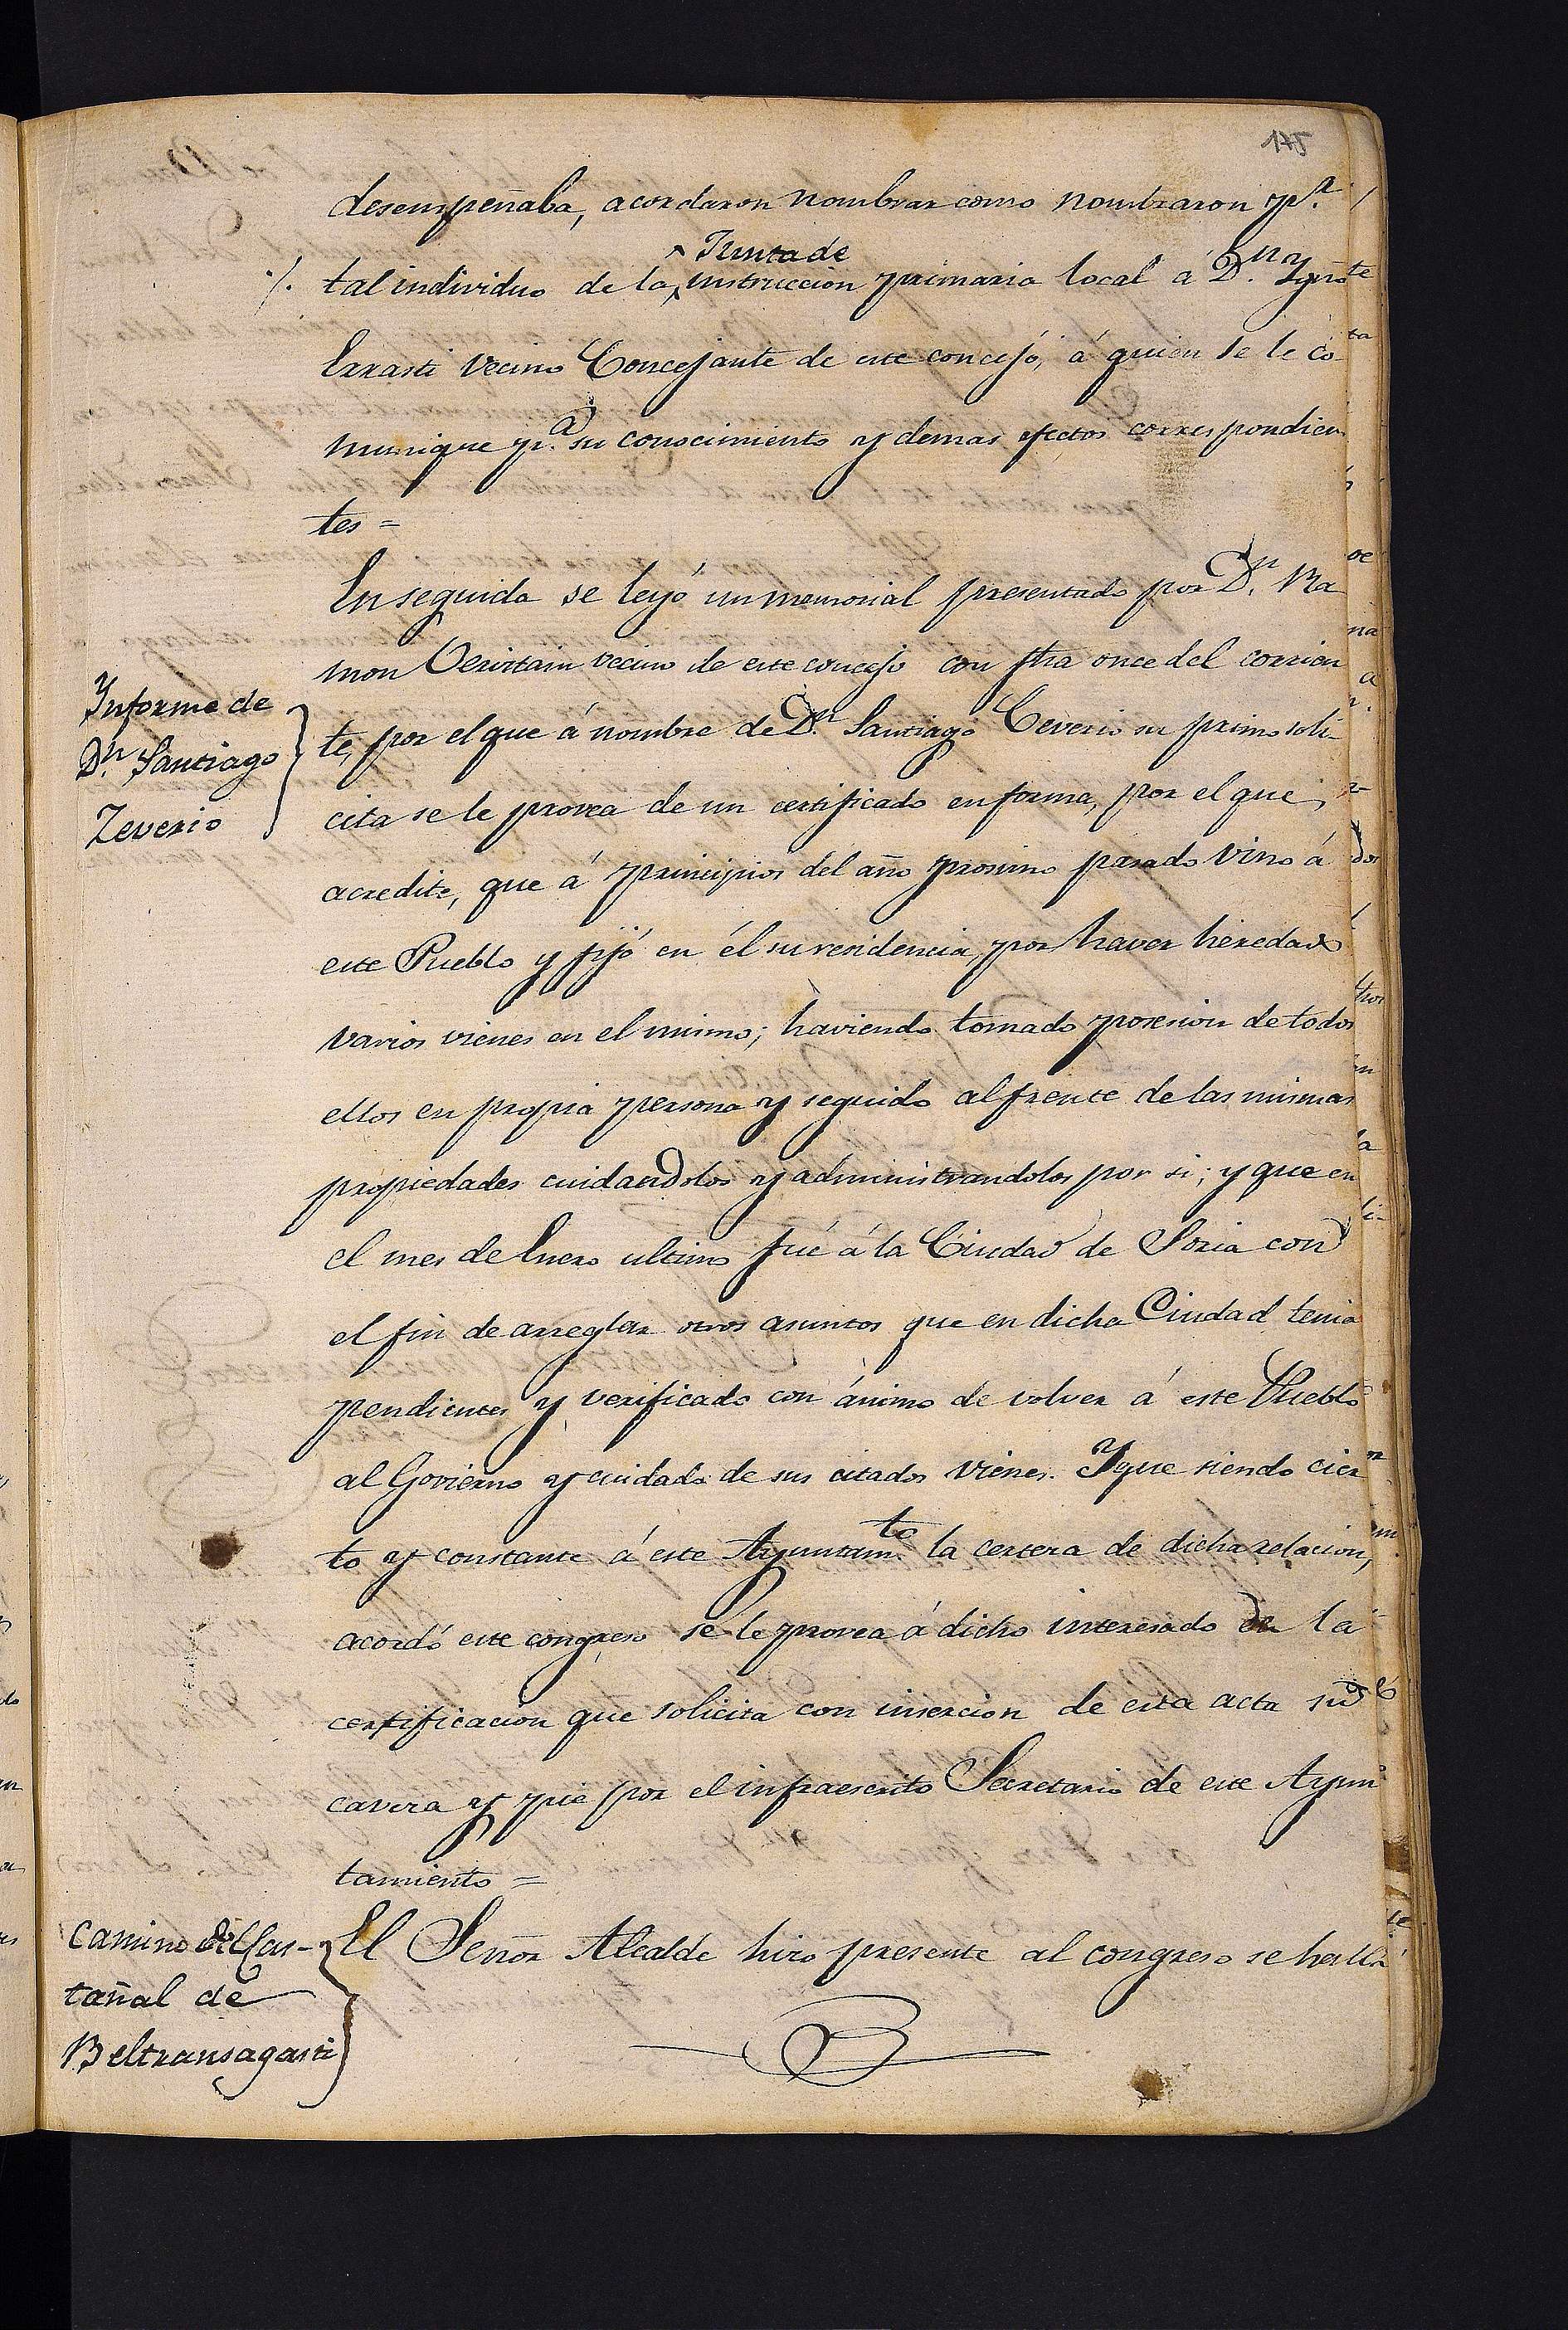 175
desempeñaba, acordaron nombrar como nombraron p.ª
Junta de
tal individuo de la instruccion primaria local á D.n Ygn.º
Errasti vecino Concejante de este concejo, á quien se le co
munique p.ª su conocimiento y demas efectos correspondien
tes =
En seguida se leyó un memorial presentado por D.n Ra
mon Veristain vecino de este concejo con fha once del corrien
Informe de
D.n Santiago
Zeverio
te, por el que á nombre de D.n Santiago Ceverio su primo soli-
cita se le provea de un certificado en forma, por el que,
acredite, que á principios del año prosimo pasado vino á
este Pueblo y fijó en él su residencia, por haver heredado
varios vienes en el mismo; haviendo tomado posesion de todos
ellos en propia persona y seguido al frente de las mismas
propiedades cuidandolos y administrandolos por si; y que en
el mes de Enero ultimo fué á la Ciudad de Soria con
el fin de arreglar otros asuntos que en dicha Ciudad tenia
pendientes y verificado con ánimo de volver á este Pueblo
al Govierno y cuidado de sus citados vienes. Y que siendo cier
to y constante á este Ayuntam.to la certera de dicha relacion,
acordó este congreso se le provea á dicho interesado de la
certificacion que solicita con insercion de esta acta su
cavera y pie por el infraescrito Secretario de este Ayun
tamiento =
Camino del Cas-
tañal de
Beltransagasti
El Señor Alcalde hizo presente al congreso se halla